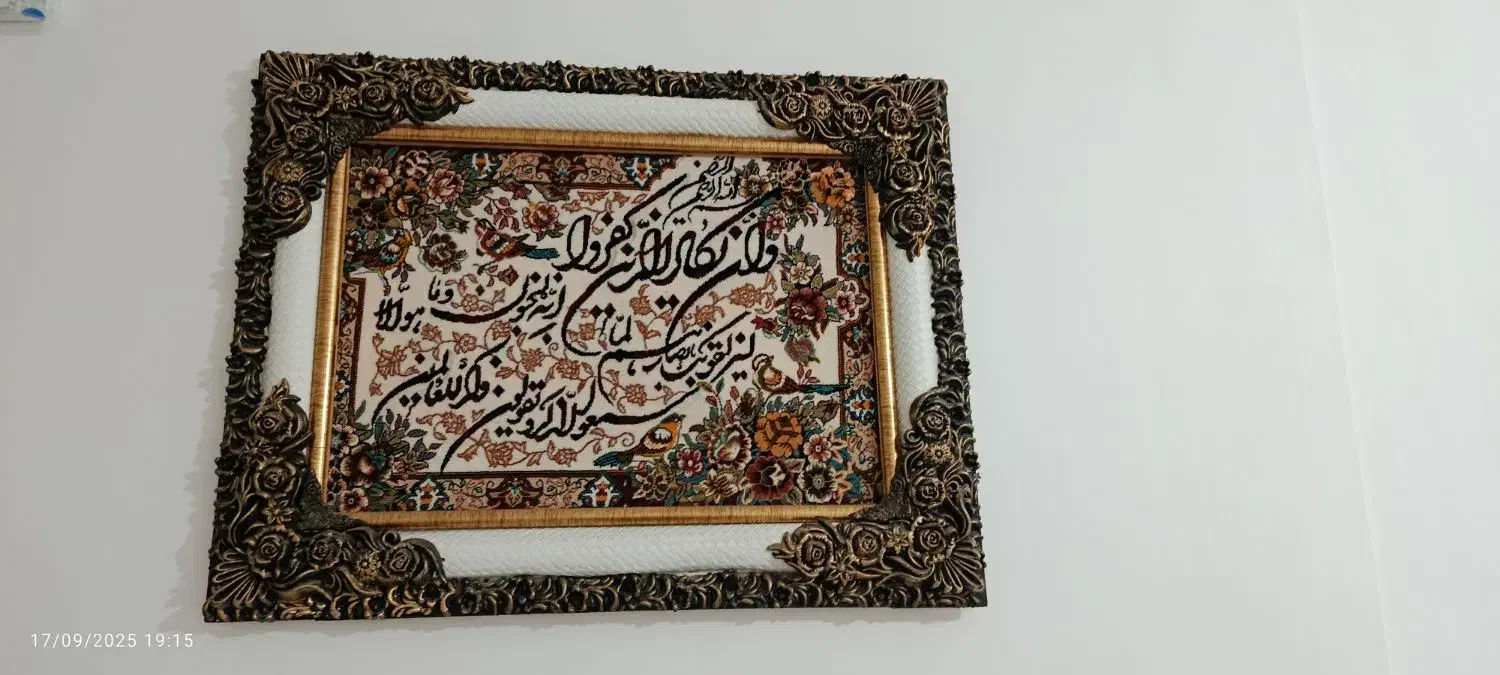 بسم الله الرحمن الرحيم
وان يكاد الذين كفروا
ليزلقونك بابصارهم لما
سمعوا الذكر ويقولون
انه لمجنون وما هو الا
ذكر للعالمين
17/09/2025 19:15